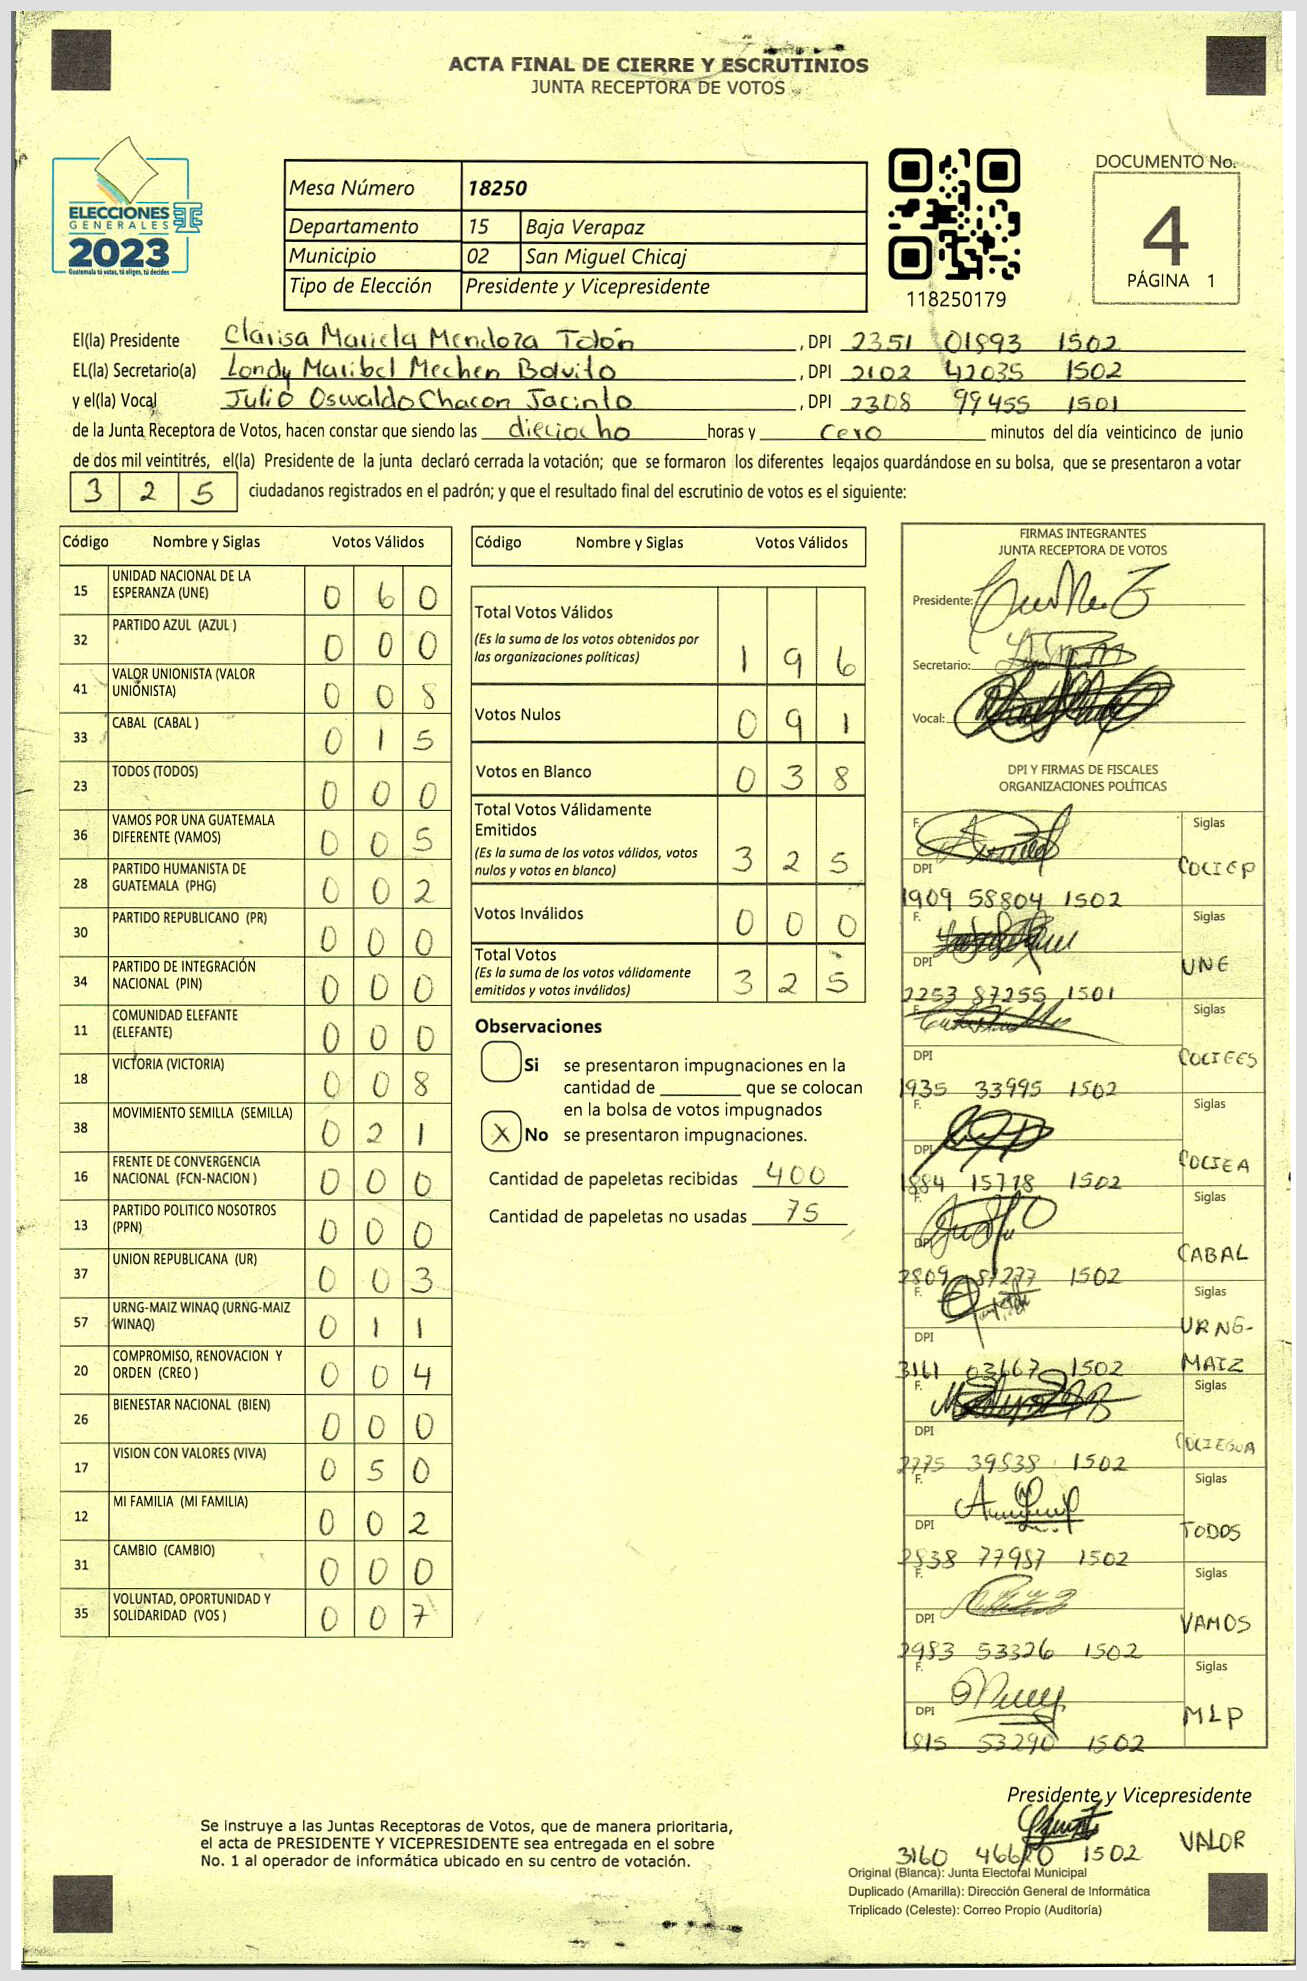 ACTA FINAL DE CIERRE Y ESCRUTINIOS
JUNTA RECEPTORA DE VOTOS
ELECCIONES
GENERALES
2023
Guatemala tú votas, tú eliges, tú decides
Mesa Número 18250
Departamento 15 Baja Verapaz
Municipio 02 San Miguel Chicaj
Tipo de Elección Presidente y Vicepresidente
118250179
DOCUMENTO No.
4
PÁGINA 1
El(la) Presidente Clarisa Mariela Mendoza Tolón, DPI 2351 01893 1502
EL(la) Secretario(a) Londy Maribel Mechen Bolvito, DPI 2102 42035 1502
y el(la) Vocal Julio Oswaldo Chacon Jacinto, DPI 2308 99455 1501
de la Junta Receptora de Votos, hacen constar que siendo las dieciocho horas y cero minutos del día veinticinco de junio
de dos mil veintitrés, el(la) Presidente de la junta declaró cerrada la votación; que se formaron los diferentes legajos guardándose en su bolsa, que se presentaron a votar
3 2 5 ciudadanos registrados en el padrón; y que el resultado final del escrutinio de votos es el siguiente:
Código Nombre y Siglas Votos Válidos
15 UNIDAD NACIONAL DE LA ESPERANZA (UNE) 0 6 0
32 PARTIDO AZUL (AZUL ) 0 0 0
41 VALOR UNIONISTA (VALOR UNIONISTA) 0 0 8
33 CABAL (CABAL ) 0 1 5
23 TODOS (TODOS) 0 0 0
36 VAMOS POR UNA GUATEMALA DIFERENTE (VAMOS) 0 0 5
28 PARTIDO HUMANISTA DE GUATEMALA (PHG) 0 0 2
30 PARTIDO REPUBLICANO (PR) 0 0 0
34 PARTIDO DE INTEGRACIÓN NACIONAL (PIN) 0 0 0
11 COMUNIDAD ELEFANTE (ELEFANTE) 0 0 0
18 VICTORIA (VICTORIA) 0 0 8
38 MOVIMIENTO SEMILLA (SEMILLA) 0 2 1
16 FRENTE DE CONVERGENCIA NACIONAL (FCN-NACION ) 0 0 0
13 PARTIDO POLITICO NOSOTROS (PPN) 0 0 0
37 UNION REPUBLICANA (UR) 0 0 3
57 URNG-MAIZ WINAQ (URNG-MAIZ WINAQ) 0 1 1
20 COMPROMISO, RENOVACION Y ORDEN (CREO ) 0 0 4
26 BIENESTAR NACIONAL (BIEN) 0 0 0
17 VISION CON VALORES (VIVA) 0 5 0
12 MI FAMILIA (MI FAMILIA) 0 0 2
31 CAMBIO (CAMBIO) 0 0 0
35 VOLUNTAD, OPORTUNIDAD Y SOLIDARIDAD (VOS ) 0 0 7
Código Nombre y Siglas Votos Válidos
Total Votos Válidos
(Es la suma de los votos obtenidos por
las organizaciones políticas) 1 9 6
Votos Nulos 0 9 1
Votos en Blanco 0 3 8
Total Votos Válidamente
Emitidos
(Es la suma de los votos válidos, votos
nulos y votos en blanco) 3 2 5
Votos Inválidos 0 0 0
Total Votos
(Es la suma de los votos válidamente
emitidos y votos inválidos) 3 2 5
Observaciones
Si se presentaron impugnaciones en la
cantidad de ________ que se colocan
en la bolsa de votos impugnados
X No se presentaron impugnaciones.
Cantidad de papeletas recibidas 400
Cantidad de papeletas no usadas 75
FIRMAS INTEGRANTES
JUNTA RECEPTORA DE VOTOS
Presidente:
Secretario:
Vocal:
DPI Y FIRMAS DE FISCALES
ORGANIZACIONES POLÍTICAS
F. Siglas
DPI COCIEP
1909 58804 1502
F. Siglas
DPI UNE
2253 87255 1501
F. Siglas
DPI COCIEES
1935 33995 1502
F. Siglas
DPI COCIEA
1884 15778 1502
F. Siglas
DPI CABAL
2809 87277 1502
F. Siglas
DPI URNG-
3161 03667 1502 MAIZ
F. Siglas
DPI COCIEGUA
2775 39838 1502
F. Siglas
DPI TODOS
2838 77987 1502
F. Siglas
DPI VAMOS
2983 53326 1502
F. Siglas
DPI MLP
1815 53290 1502
Presidente y Vicepresidente
3160 1502 VALOR
Se instruye a las Juntas Receptoras de Votos, que de manera prioritaria,
el acta de PRESIDENTE Y VICEPRESIDENTE sea entregada en el sobre
No. 1 al operador de informática ubicado en su centro de votación.
Original (Blanca): Junta Electoral Municipal
Duplicado (Amarilla): Dirección General de Informática
Triplicado (Celeste): Correo Propio (Auditoría)